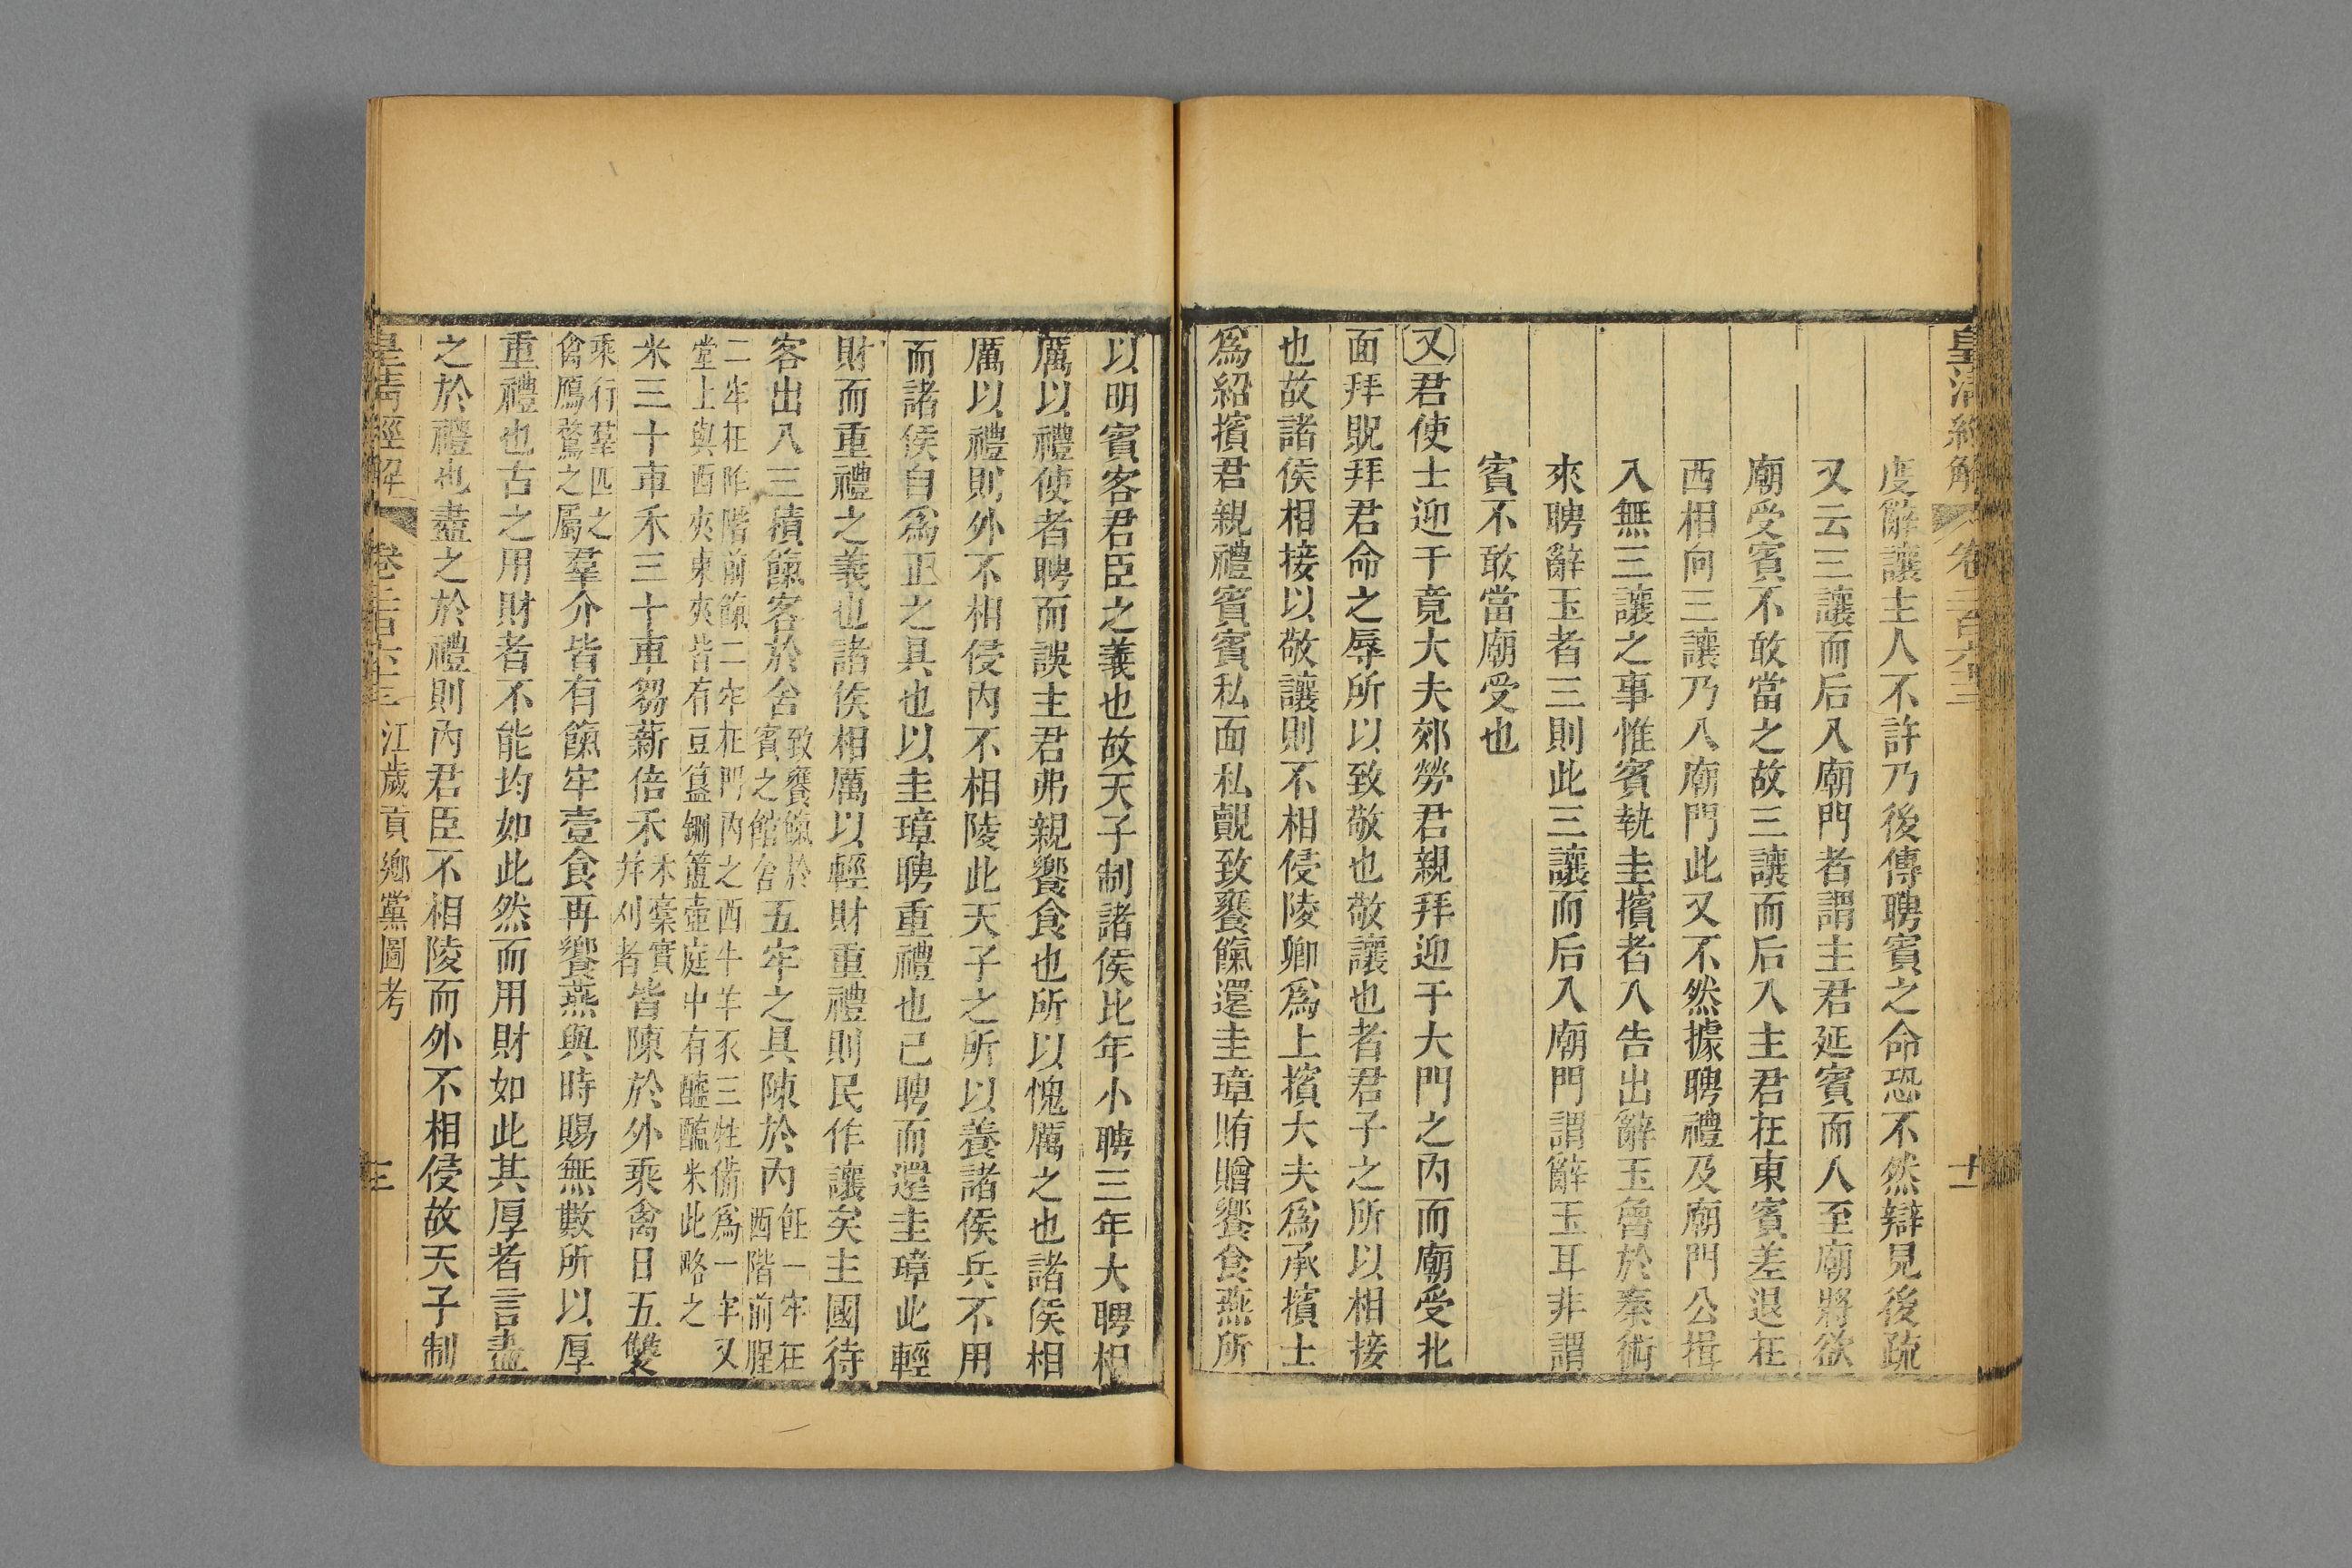 皇清經解 卷二百六十三 十一
度辭讓主人不許乃後傳聘賓之命恐不然辯見後疏
又云三讓而后入廟門者謂主君延賓而入至廟將欲
廟受賓不敢當之故三讓而后入主君在東賓差退在
西相向三讓乃入廟門此又不然據聘禮及廟門公揖
入無三讓之事惟賓執圭擯者入告出辭玉魯於秦術
來聘辭玉者三則此三讓而后入廟門謂辭玉耳非謂
賓不敢當廟受也
又君使士迎于竟大夫郊勞君親拜迎于大門之內而廟受北
面拜貺拜君命之辱所以致敬也敬讓也者君子之所以相接
也故諸侯相接以敬讓則不相侵陵卿爲上擯大夫爲承擯士
爲紹擯君親禮賓賓私面私覿致饔餼還圭璋賄贈饗食燕所
以明賓客君臣之義也故天子制諸侯比年小聘三年大聘相
厲以禮使者聘而誤主君弗親饗食也所以愧厲之也諸侯相
厲以禮則外不相侵內不相陵此天子之所以養諸侯兵不用
而諸侯自爲正之具也以圭璋聘重禮也已聘而還圭璋此輕
財而重禮之義也諸侯相厲以輕財重禮則民作讓矣主國待
客出入三積餼客於舍致饔餼於賓之館舍五牢之具陳於內飪一牢在西階前腥
二牢在阼階前餼二牢在門內之西牛羊豕三牲備爲一牢又堂上與西夾東夾皆有豆簋鉶簠壺庭中有醯醢米此略之
米三十車禾三十車芻薪倍禾禾稾實并刈者皆陳於外乘禽日五雙
乘行羣匹之禽鴈鶩之屬羣介皆有餼牢壹食再饗燕與時賜無數所以厚
重禮也古之用財者不能均如此然而用財如此其厚者言盡
之於禮也盡之於禮則內君臣不相陵而外不相侵故天子制
皇清經解 卷二百六十三 江歲貢鄉黨圖考 三